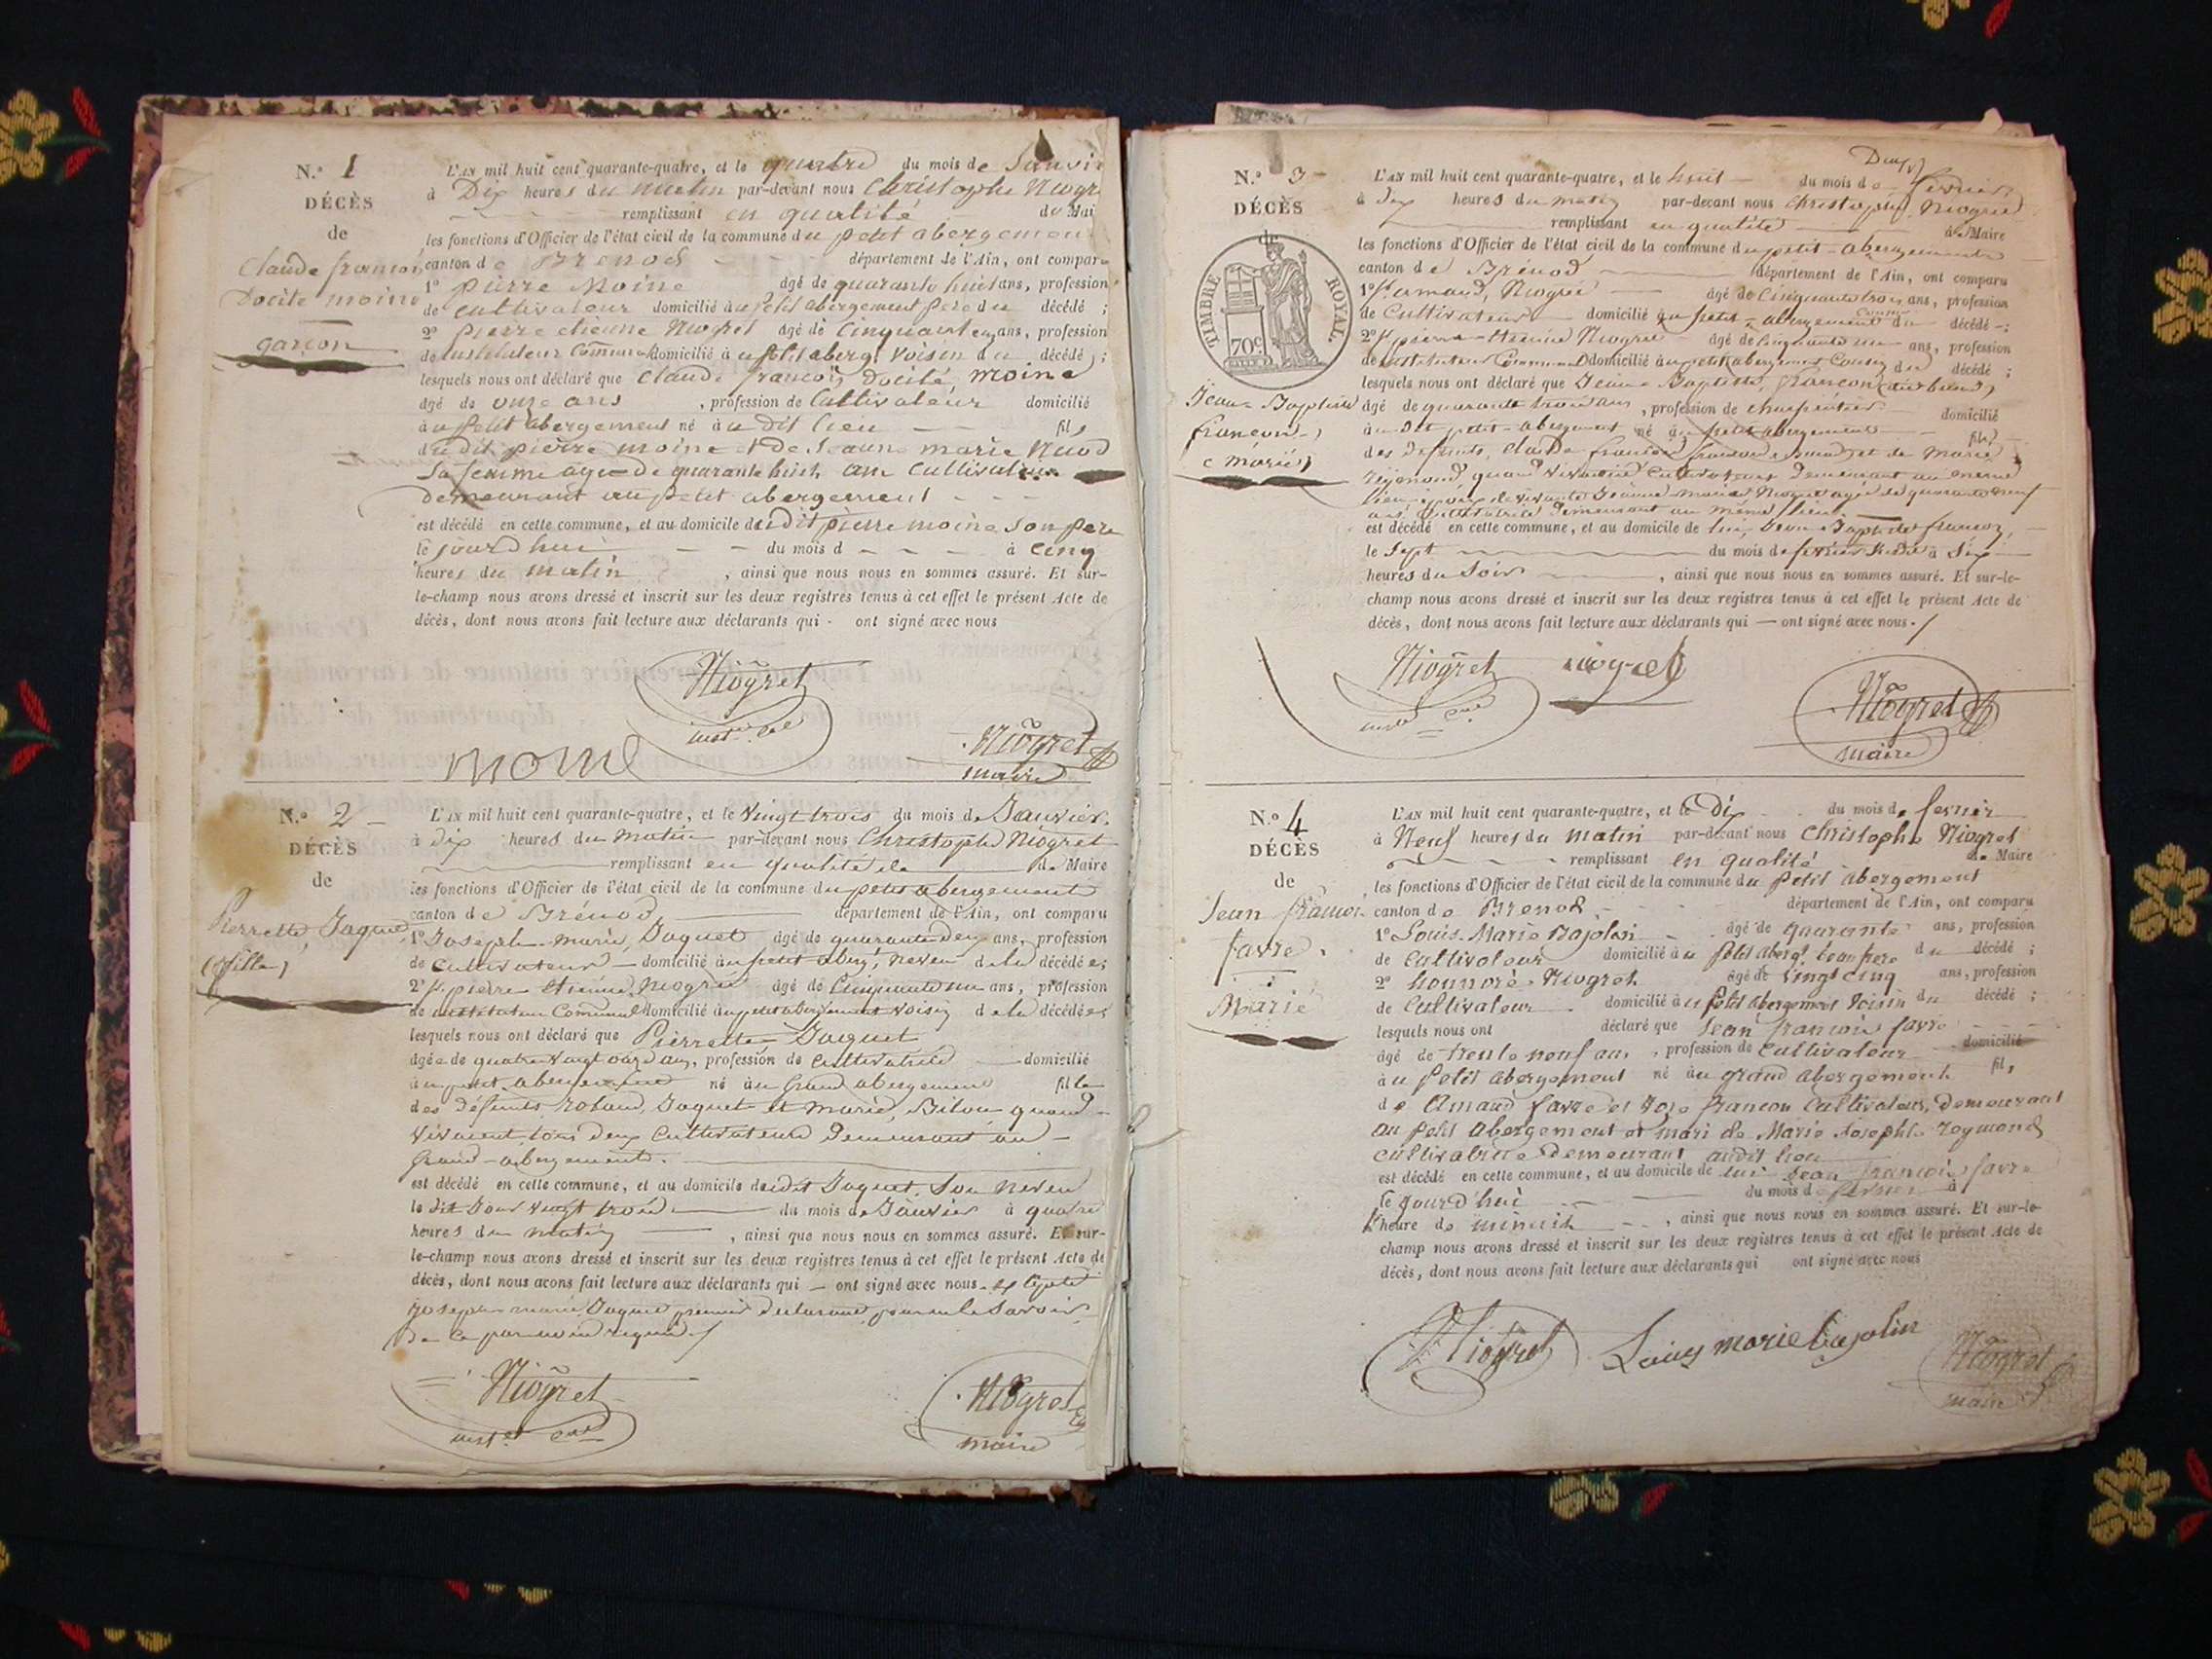 N.º 1
DÉCÈS
de
Claude françois
Docile moine
garçon
L'AN mil huit cent quarante-quatre, et le quatre du mois de Janvier
à Dix heures du matin par-devant nous Christophe Niogret
remplissant en qualité de Mai
les fonctions d'Officier de l'état civil de la commune du petit abergement
canton de Brenod département de l'Ain, ont comparu
1º pierre Moine âgé de quarante huit ans, profession
de cultivateur domicilié au petit abergement pere du décédé ;
2º pierre etienne Niogret âgé de cinquante ans, profession
de instituteur Communal domicilié à u petit aberg.t voisin du décédé ;
lesquels nous ont déclaré que Claude françois Docile, moine
âgé de onze ans , profession de Cultivateur domicilié
à u petit abergement né à u dit lieu fils
du dit pierre moine et de Jeanne marie Nuod
sa femme agée de quarante huit ans Cultivateurs
demeurant au petit abergement
est décédé en cette commune, et au domicile du dit pierre moine son pere
le jourd'hui du mois d à Cinq
heures du matin , ainsi que nous nous en sommes assuré. Et sur-
le-champ nous avons dressé et inscrit sur les deux registres tenus à cet effet le présent Acte de
décès, dont nous avons fait lecture aux déclarants qui ont signé avec nous
Niogret
moine
Niogret
maire
N.º 2
DÉCÈS
de
Pierrette Jaquet
(fille)
L'AN mil huit cent quarante-quatre, et le vingt trois du mois de Janvier
à dix heures du matin par-devant nous Christophe Niogret
remplissant en qualité de de Maire
les fonctions d'Officier de l'état civil de la commune du petit abergement
canton de Brénod département de l'Ain, ont comparu
1º Joseph marie Jaquet âgé de quarante deux ans, profession
de cultivateur domicilié à u petit aberg.t neveu de la décédée ;
2º S.r pierre etienne Niogret âgé de Cinquante un ans, profession
de instituteur Communal domicilié au petit abergement voisin de la décédée ;
lesquels nous ont déclaré que Pierrette Jaquet
âgée de quatre vingt onze ans, profession de cultivatrice domicilié
à u petit abergement né à u Grand abergement fille
des défunts roland Jaquet et marie quand
vivaient tous deux cultivateurs demeurant au
Grand-abergement.
est décédé en cette commune, et au domicile du dit Jaquet, son neveu
le dit Jour vingt trois du mois de Janvier à quatre
heures du matin , ainsi que nous nous en sommes assuré. Et sur-
le-champ nous avons dressé et inscrit sur les deux registres tenus à cet effet le présent Acte de
décès, dont nous avons fait lecture aux déclarants qui ont signé avec nous excepté
Joseph marie Jaquet premier declarant pour ne le savoir
de ce par nous requis
Niogret
Niogret
maire
Deux
N.º 3
DÉCÈS
de
TIMBRE ROYAL.
70c
Jean-Baptiste
françon
marié
L'AN mil huit cent quarante-quatre, et le huit du mois de fevrier
à dix heures du matin par-devant nous christophe Niogret
remplissant en qualité de Maire
les fonctions d'Officier de l'état civil de la commune du petit-abergement
canton de Brénod département de l'Ain, ont comparu
1º S.r amand, Niogret âgé de Cinquante trois ans, profession
de Cultivateur domicilié à u petit-abergement cousin du décédé ;
2º S.r pierre-etienne Niogret âgé de cinquante un ans, profession
de instituteur Communal domicilié à u petit abergement Cousin du décédé ;
lesquels nous ont déclaré que Jean-Baptiste, françon
âgé de quarante trois ans , profession de charpentier domicilié
à u dit petit-abergement né à u petit-abergement fils
des defunts, Claude françois et de Marie
reymond quand vivaient Cultivateurs demeurant au meme
lieu, époux de vivante Jeanne marie Niogret agée de quarante neuf
ans Cultivatrice demeurant au même lieu
est décédé en cette commune, et au domicile de lui, Jean Baptiste françon
le sept du mois de février à six
heures du soir , ainsi que nous nous en sommes assuré. Et sur-le-
champ nous avons dressé et inscrit sur les deux registres tenus à cet effet le présent Acte de
décès, dont nous avons fait lecture aux déclarants qui ont signé avec nous.
Niogret niogret
Niogret
maire
N.º 4
DÉCÈS
de
Jean françois
favre
Marié
L'AN mil huit cent quarante-quatre, et le Dix du mois de fevrier
à Neuf heures du matin par-devant nous Christophe Niogret
remplissant en qualité de Maire
les fonctions d'Officier de l'état civil de la commune du Petit abergement
canton de Brenod département de l'Ain, ont comparu
1º Louis-Marie Bajolin âgé de quarante ans, profession
de Cultivateur domicilié à u petit aberg.t beau frere du décédé ;
2º honnoré Niogret âgé de vingt cinq ans, profession
de Cultivateur domicilié à u petit abergement Voisin du décédé ;
lesquels nous ont déclaré que Jean françois favre
âgé de trente neuf ans , profession de Cultivateur domicilié
à u petit abergement né à u grand abergement fils
de Amand favre et Rose françon Cultivateurs, Demeurant
au petit Abergement et mari de Marie Josephte reymond
cultivatrice demeurant audit lieu
est décédé en cette commune, et au domicile de lui Jean françois favre
le jourd'hui du mois de fevrier à
l'heure de minuit , ainsi que nous nous en sommes assuré. Et sur-le-
champ nous avons dressé et inscrit sur les deux registres tenus à cet effet le présent Acte de
décès, dont nous avons fait lecture aux déclarants qui ont signé avec nous
Niogret Louis marie bajolin Niogret
maire